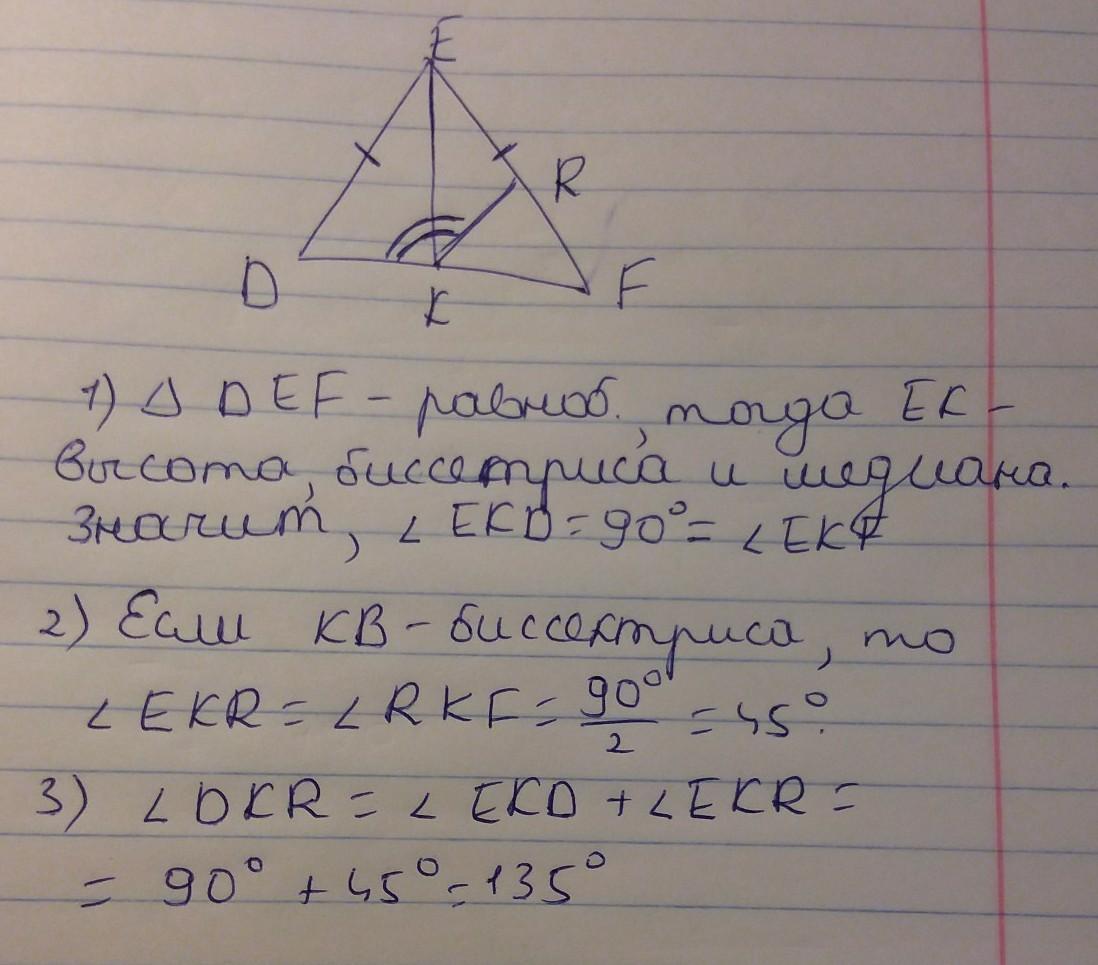 E
R
D
K
F
1) Δ DEF - равноб., тогда EK -
высота, биссектриса и медиана.
Значит, ∠ EKD = 90° = ∠ EKF
2) Если KB - биссектриса, то
∠ EKR = ∠ RKF = 90°/2 = 45°.
3) ∠ DKR = ∠ EKD + ∠ EKR =
= 90° + 45° = 135°